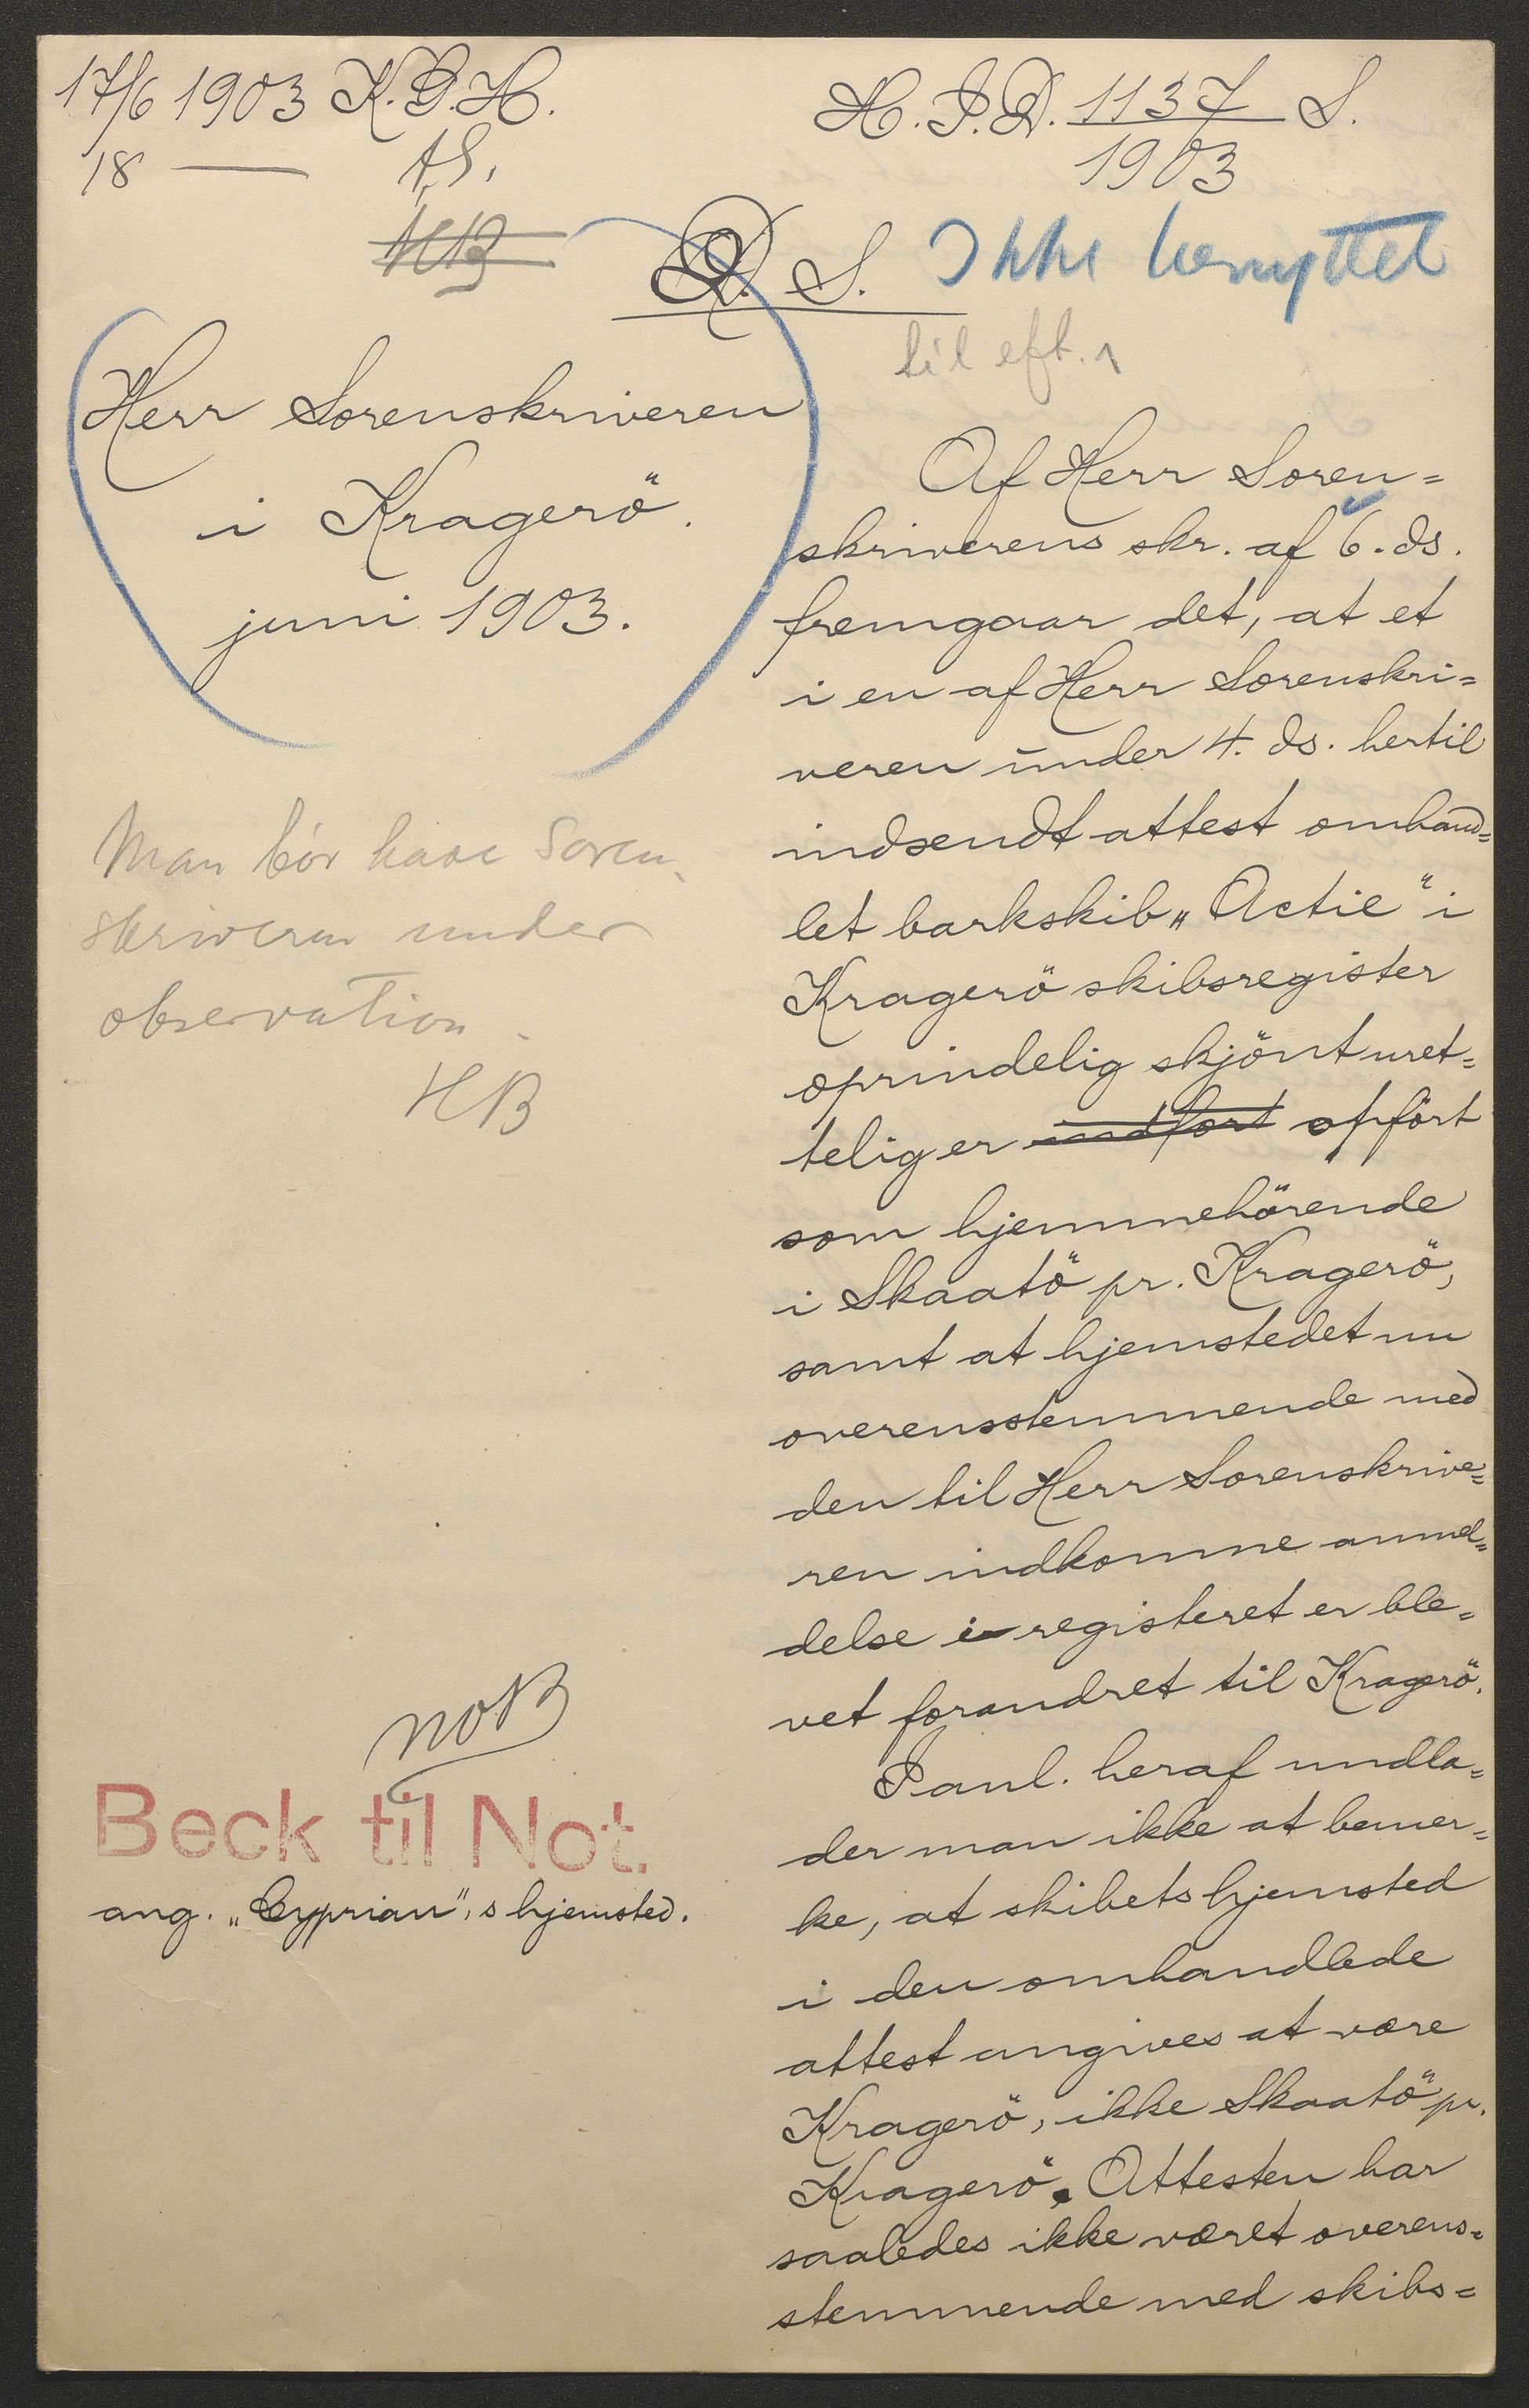 17/6 1903 K.G.H.
18 — A.S.
HB
H.J.D. 1137 S.
1903
D. S.
Ikke benyttet
til eft.
Herr Sorenskriveren
i Kragerö.
juni 1903.
Man bör have Soren
skriveren under
observation.
HB
Af Herr Soren=
skriverens skr. af 6. ds.
fremgaar det, at et
i en af Herr Sorenskri=
veren under 4. ds. hertil
indsendt attest omhand=
let barkskib „Actie" i
Kragerö skibsregister
oprindelig skjönt uret=
telig er indfört opfört
som hjemmehörende
i Skaatö pr. Kragerö,
samt at hjemstedet nu
overensstemmende med
den til Herr Sorenskrive=
ren indkomne anmel=
delse i registeret er ble=
vet forandret til Kragerö.
I anl. heraf undla=
der man ikke at bemer=
ke, at skibets hjemsted
i den omhandlede
attest angives at være
Kragerö, ikke Skaatö pr.
Kragerö. Attesten har
saaledes ikke været overens=
stemmende med skibs=
Beck til Not.
ang. „Cyprian",s hjemsted.